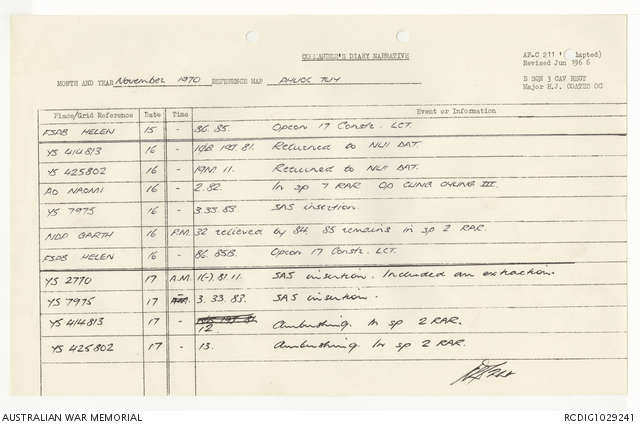 COMMANDER'S DIARY NARRATIVE
AF-C 211 ( apted)
Revised Jun 1966
MONTH AND YEAR November 1970 REFERENCE MAP PHUOC TUY
B SQN 3 CAV REGT
Major H.J. COATES OC
Place/Grid Reference Date Time Event or Information
FSPB HELEN 15 - 86. 85. Opcon 17 Constr. LCT.
YS 414813 16 - 10B 19T 81. Returned to NUI DAT.
YS 425802 16 - 11. Returned to NUI DAT.
AO NAOMI 16 - 2. 82. In sp 7 RAR OP CUNG CHUNG III.
YS 7975 16 - 3. 33. 83 SAS insertion.
NDP GARTH 16 P.M. 32 relieved by 84. 85 remains in sp 2 RAR.
FSPB HELEN 16 - 86. 85B. Opcon 17 Constr. LCT.
YS 2770 17 A.M. 1(-). 81. 11. SAS insertion. Included an extraction.
YS 7975 17 3. 33. 83. SAS insertion.
YS 414813 17 - 12. Ambushing. In sp 2 RAR.
YS 425802 17 - 13. Ambushing. In sp 2 RAR.
AUSTRALIAN WAR MEMORIAL
RCDIG1029241